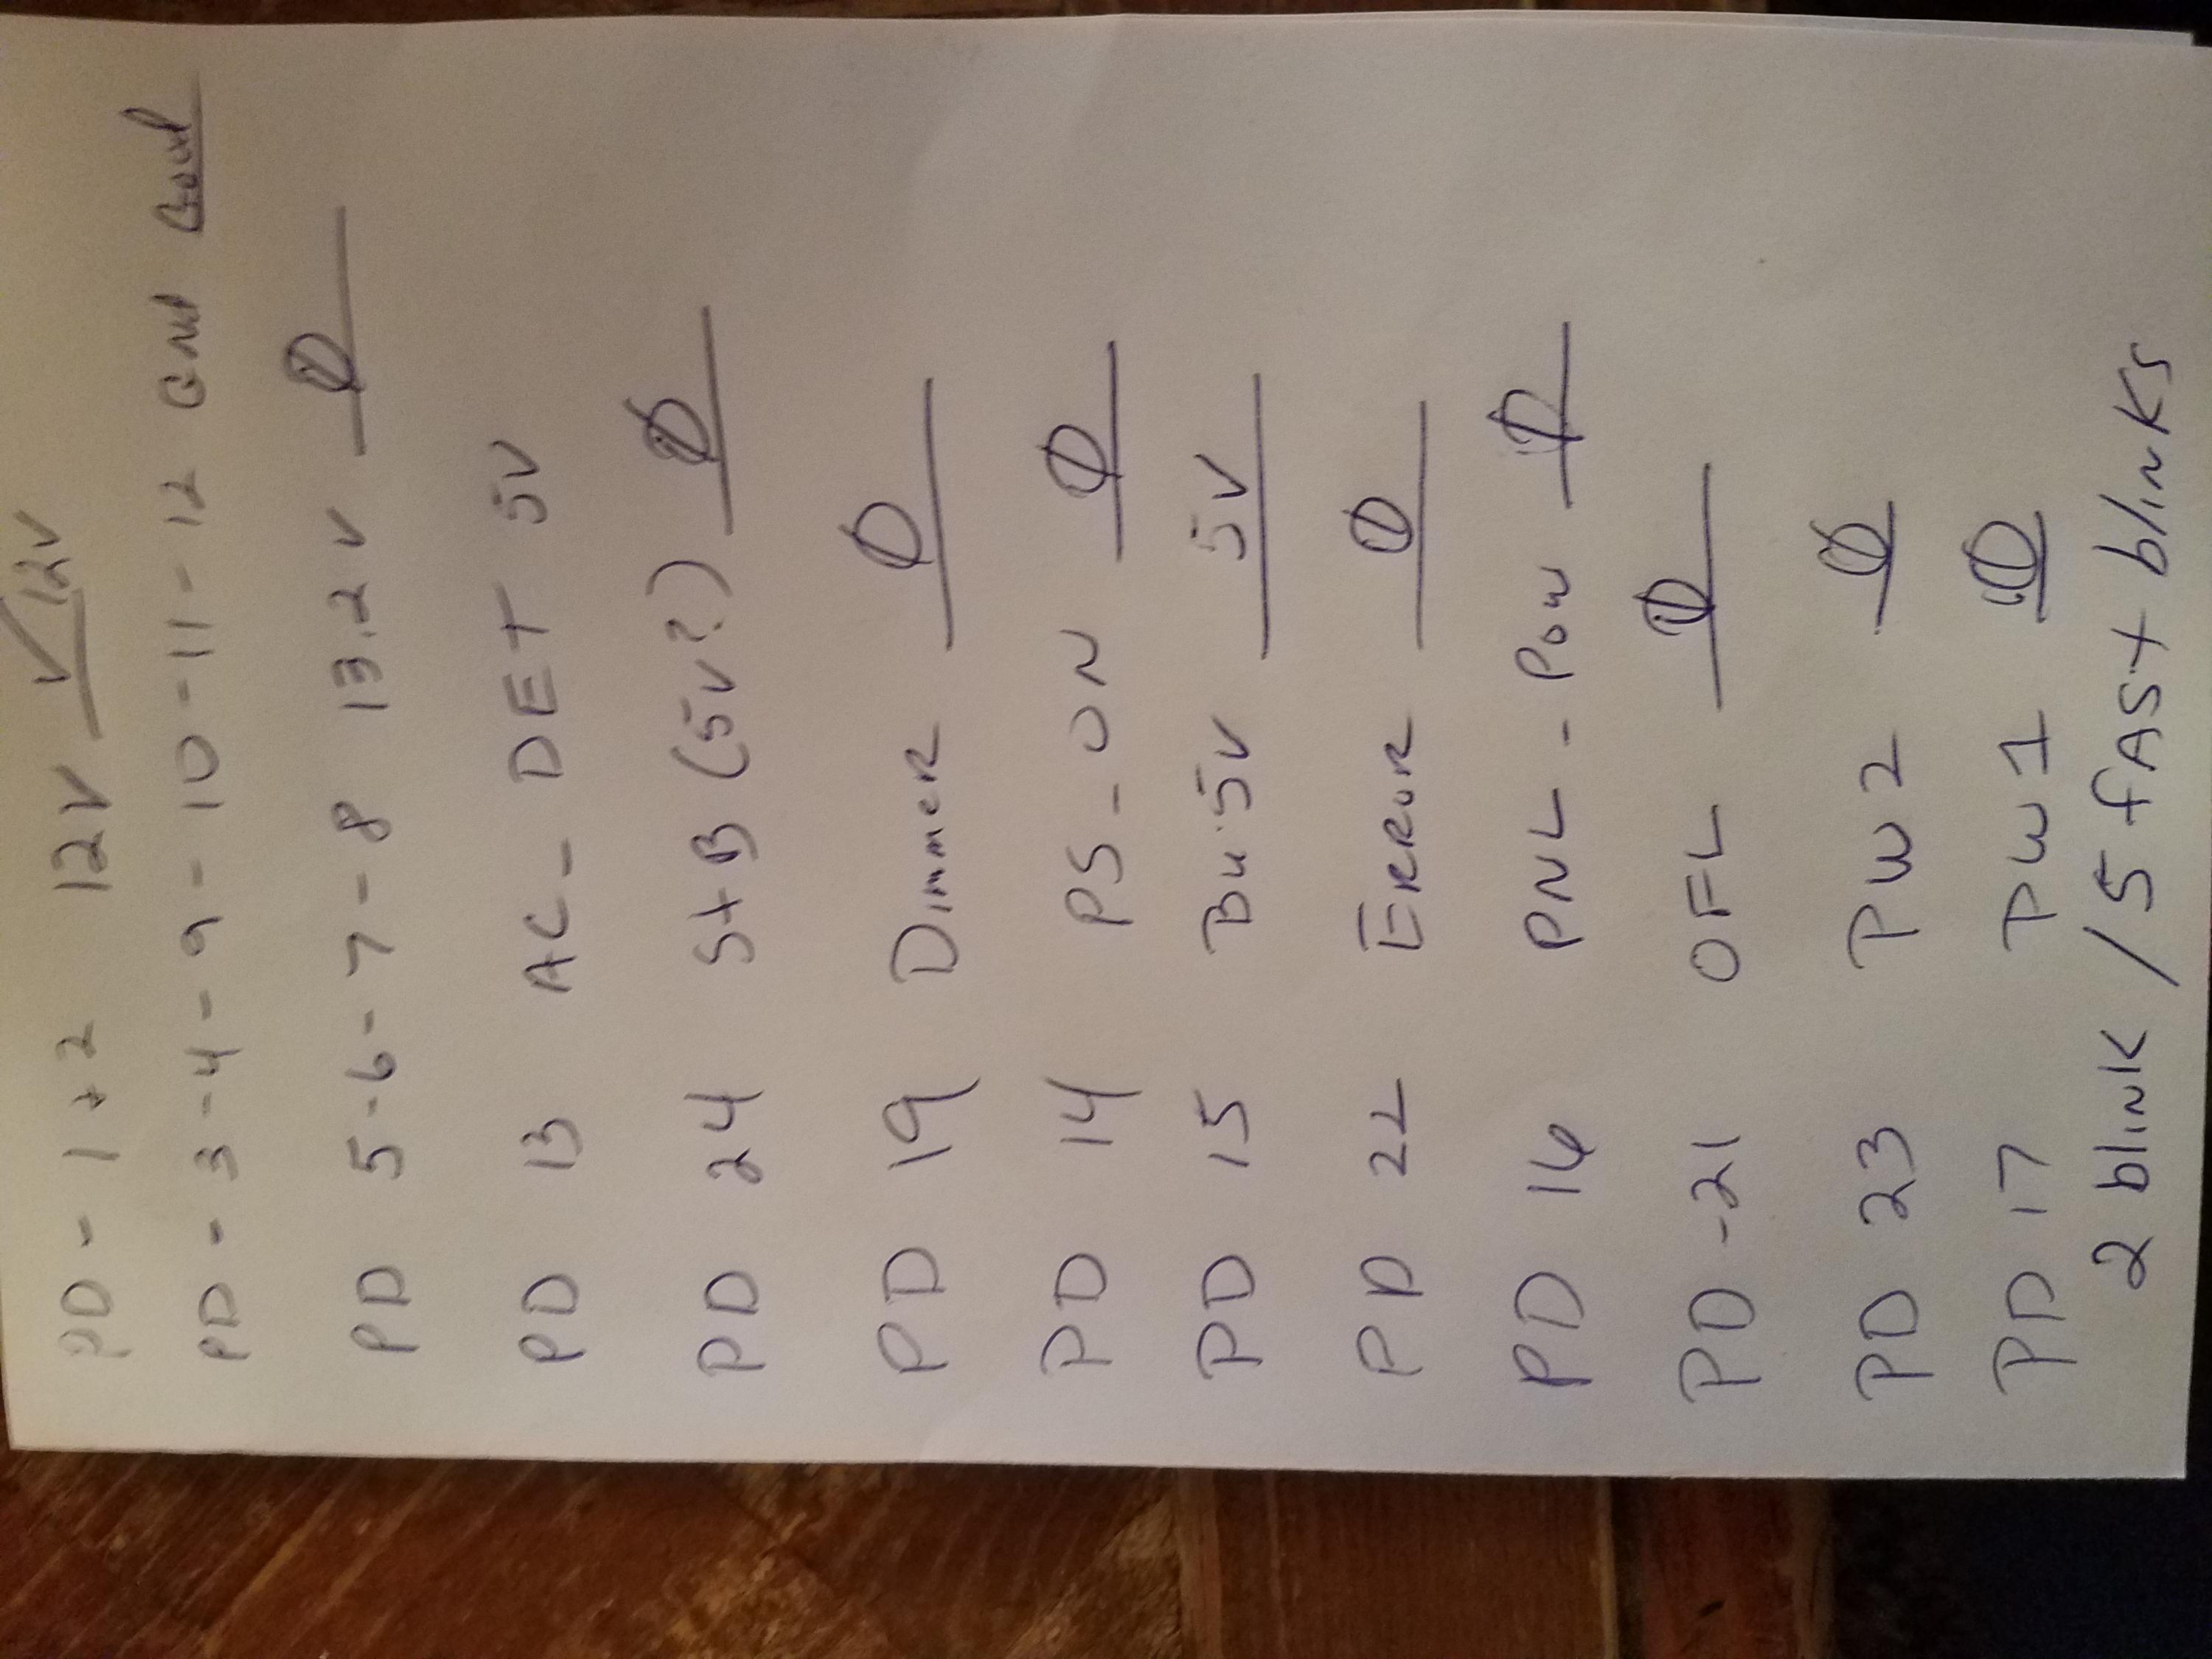 PD - 1+2 12V ✓12V
PD - 3-4-9-10-11-12 Gnd Good
PD 5-6-7-8 13.2V Ø
PD 13 AC_DET 5V
PD 24 StB (5V?) Ø
PD 19 Dimmer Ø
PD 14 PS_ON Ø
PD 15 Bu.5V 5V
PD 22 ERROR Ø
PD 16 PNL-POW Ø
PD-21 OFL Ø
PD 23 PW2 Ø
PD 17 PW1 Ø
2 blink / 5 fASt blinKs